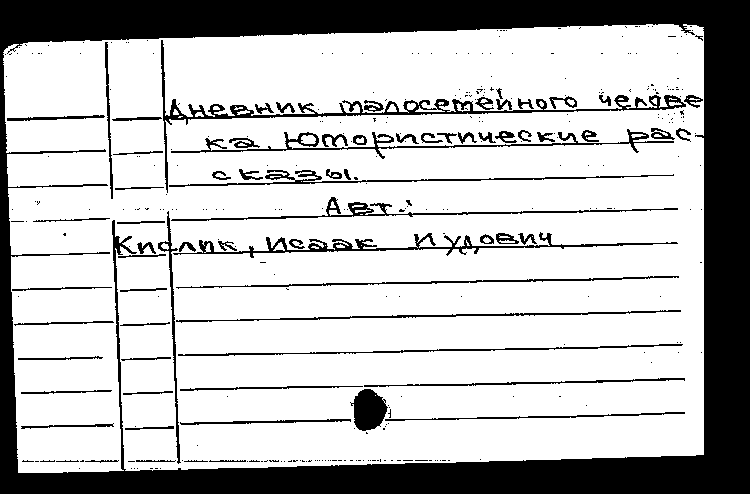 Дневник малосемейного челове
ка. Юмористические рас-
сказы.
Авт.:
Кислик, Исаак Иудович.